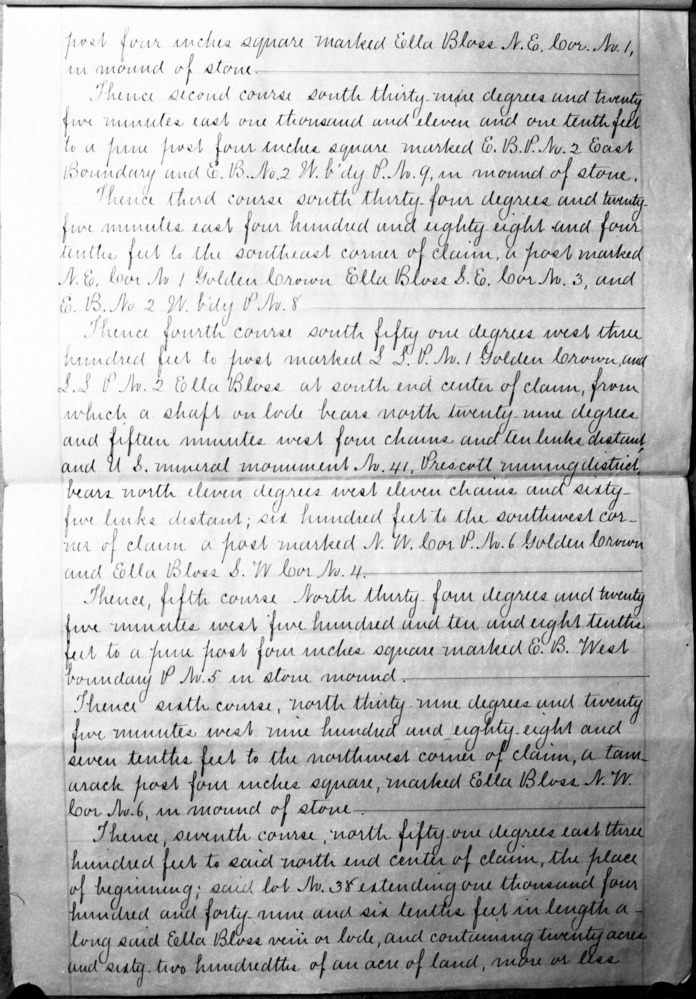 post four inches square marked Ella Bloss N.E. Cor. No. 1,
in mound of stone.
Thence second course south thirty-nine degrees and twenty
five minutes east one thousand and eleven and one tenth feet
to a pine post four inches square marked E. B. P. No. 2 East
Boundary and E. B. No. 2 W. b'dy P. No. 9, in mound of stone.
Thence third course south thirty-four degrees and twenty-
five minutes east four hundred and eighty-eight and four
tenths feet to the southeast corner of claim, a post marked
N. E. Cor No 1 Golden Crown Ella Bloss S. E. Cor No. 3, and
E. B. No 2 W. b'dy P No. 8
Thence fourth course south fifty one degrees west three
hundred feet to post marked L L. P. No. 1 Golden Crown, and
L. L P No. 2 Ella Bloss at south end center of claim, from
which a shaft on lode bears north twenty-nine degrees
and fifteen minutes west four chains and ten links distant,
and U. S. mineral monument No. 41, Prescott mining district,
bears north eleven degrees west eleven chains and sixty-
five links distant; six hundred feet to the southwest cor-
ner of claim a post marked N. W. Cor P. No. 6 Golden Crown
and Ella Bloss S. W Cor No. 4.
Thence, fifth course North thirty-four degrees and twenty
five minutes west five hundred and ten and eight tenths
feet to a pine post four inches square marked E. B. West
boundary P No. 5 in stone mound.
Thence sixth course, north thirty-nine degrees and twenty
five minutes west nine hundred and eighty-eight and
seven tenths feet to the northwest corner of claim, a tam-
arack post four inches square, marked Ella Bloss N. W.
Cor No. 6, in mound of stone.
Thence, seventh course, north fifty-one degrees east three
hundred feet to said north end center of claim, the place
of beginning; said lot No. 38 extending one thousand four
hundred and forty-nine and six tenths feet in length a-
long said Ella Bloss vein or lode, and containing twenty acres
and sixty-two hundredths of an acre of land, more or less